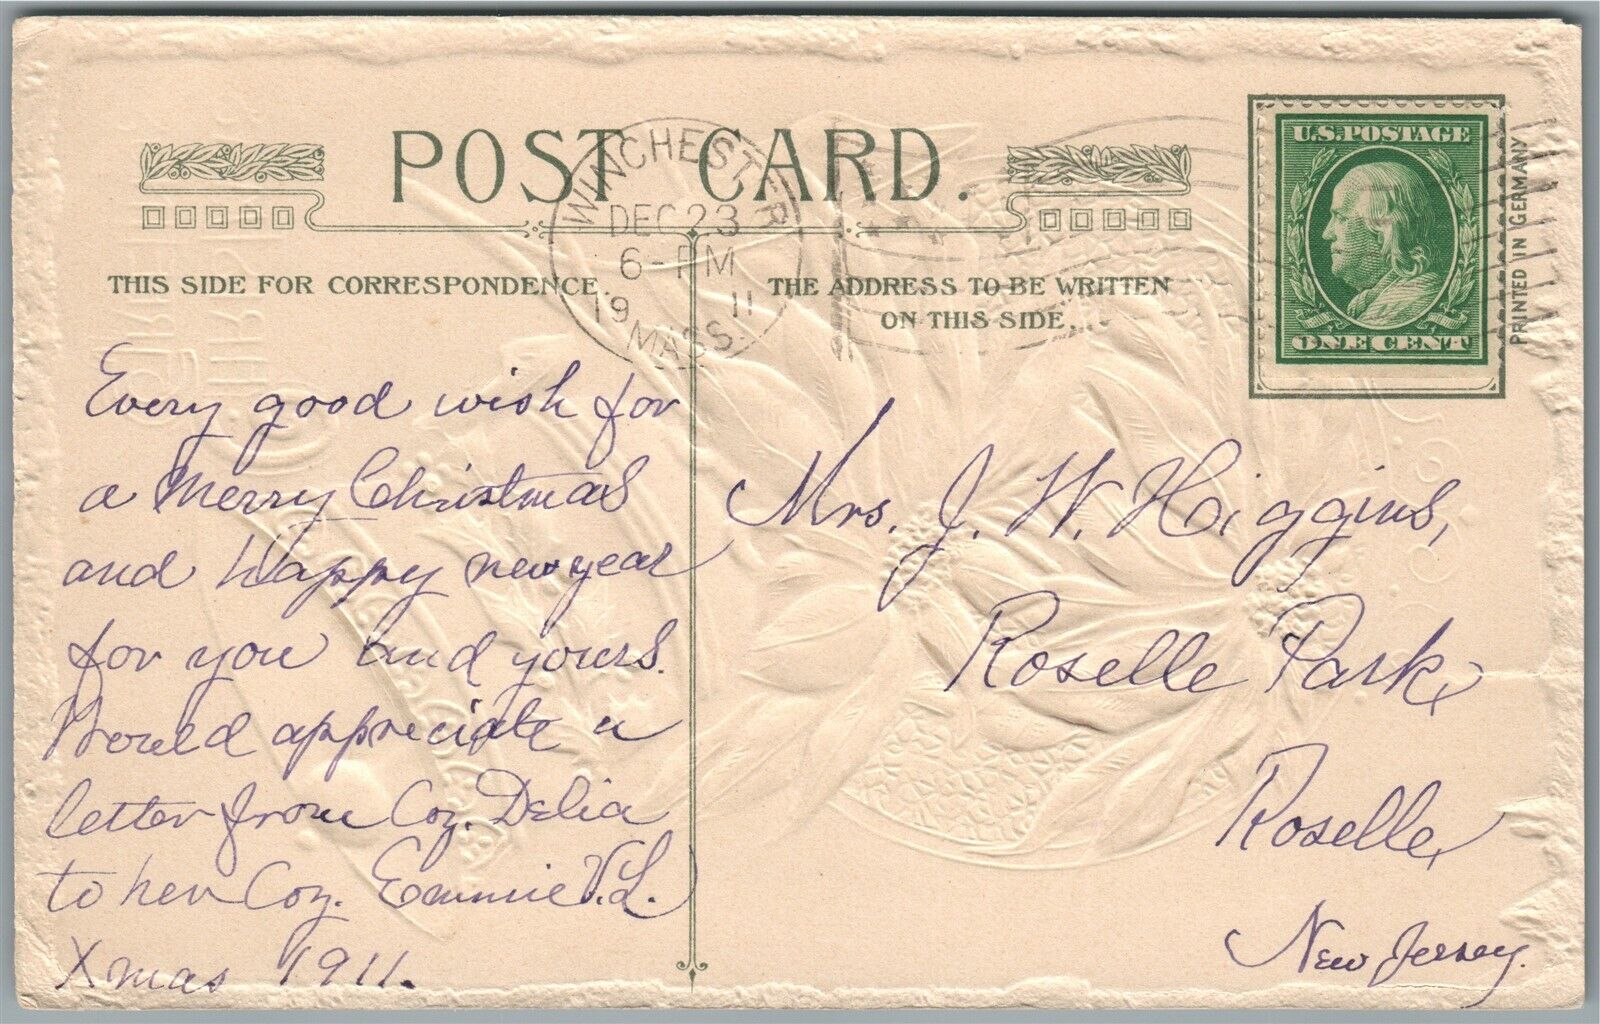 POST CARD.
WINCHESTER
DEC 23
6-PM
19 11
MASS.
U.S. POSTAGE
ONE CENT
PRINTED IN GERMANY
THIS SIDE FOR CORRESPONDENCE.
THE ADDRESS TO BE WRITTEN
ON THIS SIDE.
Every good wish for
a Merry Christmas
and happy new year
for you and yours.
Would appreciate a
letter from Coz. Delia
to her Coz. Emmie V.L.
Xmas 1911.
Mrs. J. W. Higgins,
Roselle Park,
Roselle,
New Jersey.